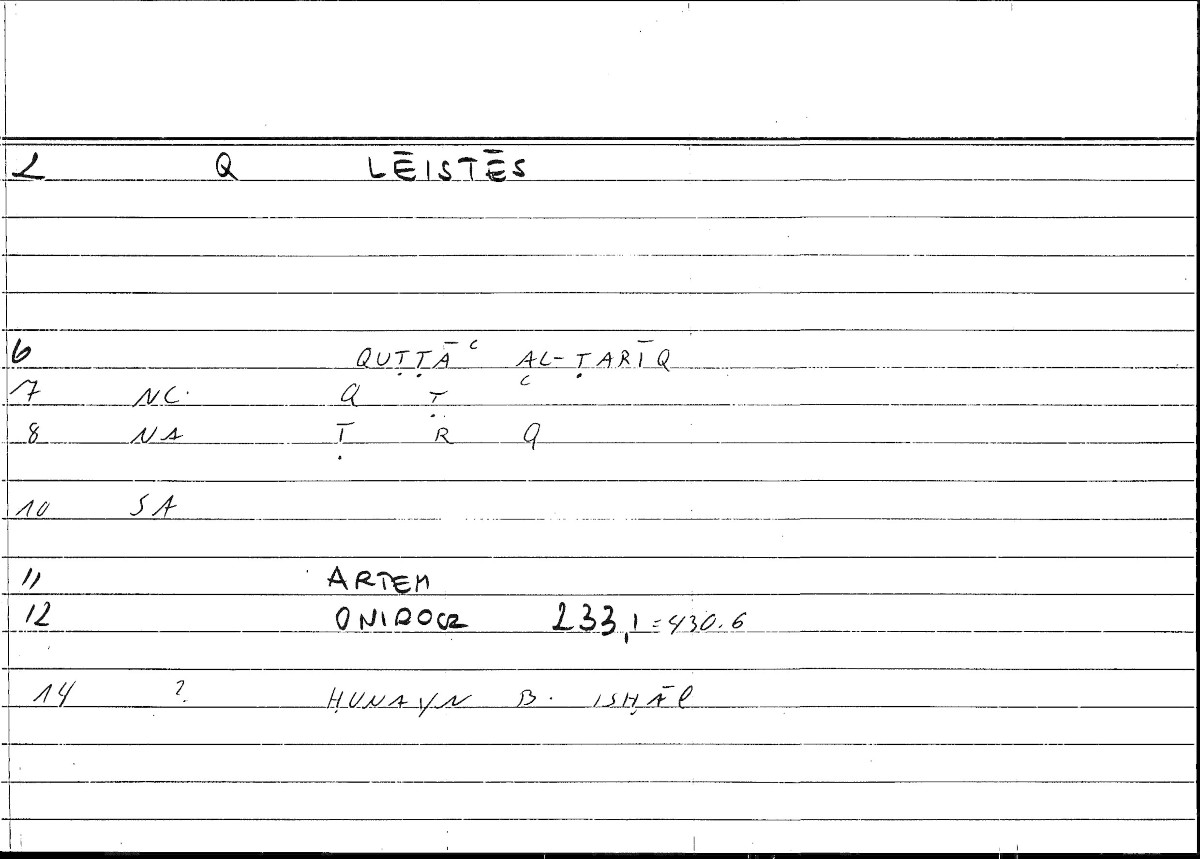 L Q LĒISTĒS
6 QUṬṬĀʿ AL-ṬARĪQ
7 NC. Q Ṭ ʿ
8 NA Ṭ R Q
10 SA
11 ARTEM
12 ONIROCR 233,1 = 430.6
14 ? ḤUNAYN B. ISḤĀQ